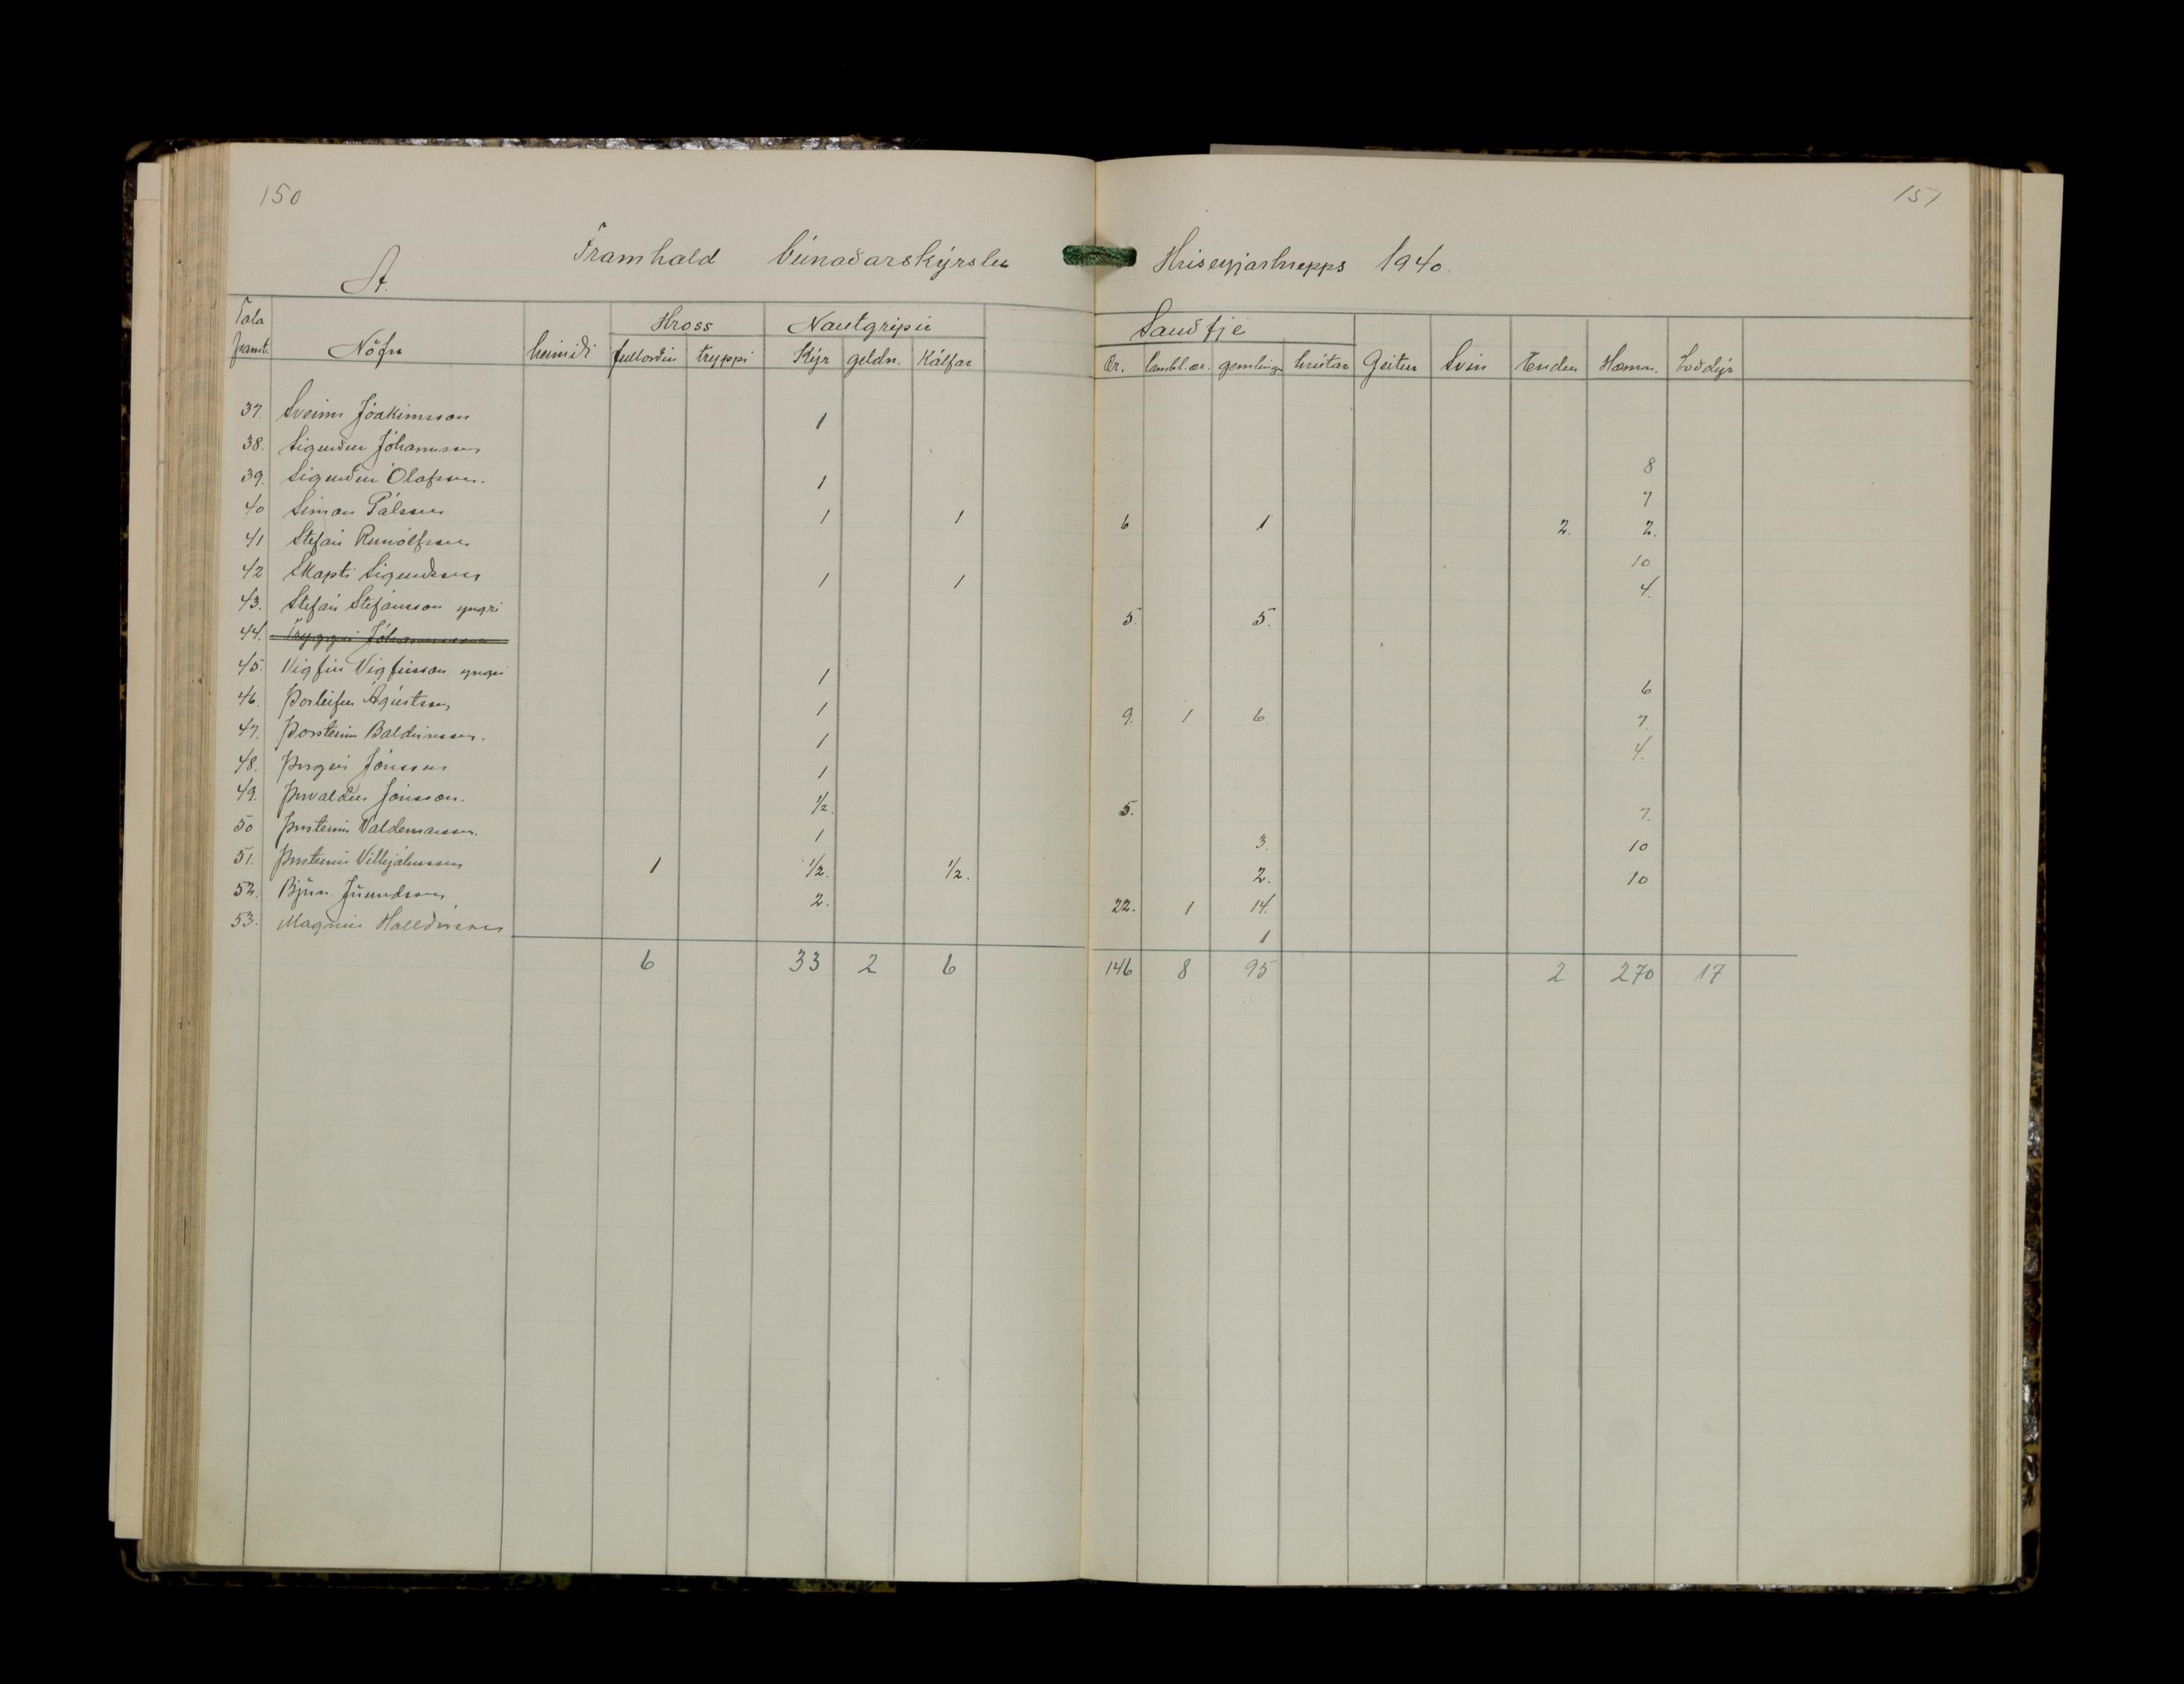 150
151
Framhald búnaðarskýrslu Hríseyjarhrepps 1940.
A.
Hross Nautgripir Sauðfje
Tala framt. Nöfn heimili fullorðin tryppi Kýr geldn. Kálfar Ær. lambl. ær. gemlingar hrútar Geitur Svín Endur Hæmn. Loðdýr
37. Sveinn Jóakimsson 1
38. Sigurður Jóhannsson 8
39. Sigurður Ólafsson. 1 7
40 Símon Pálsson 1 1 6 1 2. 2.
41 Stefán Runólfsson 10
42 Skapti Sigurðsson 1 1 4.
43. Stefán Stefánsson yngri 5. 5.
44. Tryggvi Jóhannesson
45. Vigfús Vigfússon yngri 1 6
46. Þorleifur Ágústsson 1 9. 1 6 7.
47. Þorsteinn Baldvinsson. 1 4.
48. Þorgeir Jónsson 1
49. Þorvaldur Jónsson. 1/2. 5. 7.
50 Þorsteinn Valdemarsson. 1 3. 10
51. Þorsteinn Vilhjálmsson 1 1/2. 1/2. 2. 10
52. Björn Jörundsson 2. 22. 1 14.
53. Magnús Halldórsson 1
6 33 2 6 146 8 95 2 270 17